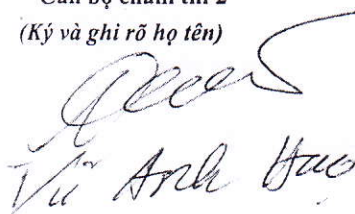 Cán bộ chấm thi 2
(Ký và ghi rõ họ tên)
Vũ Anh